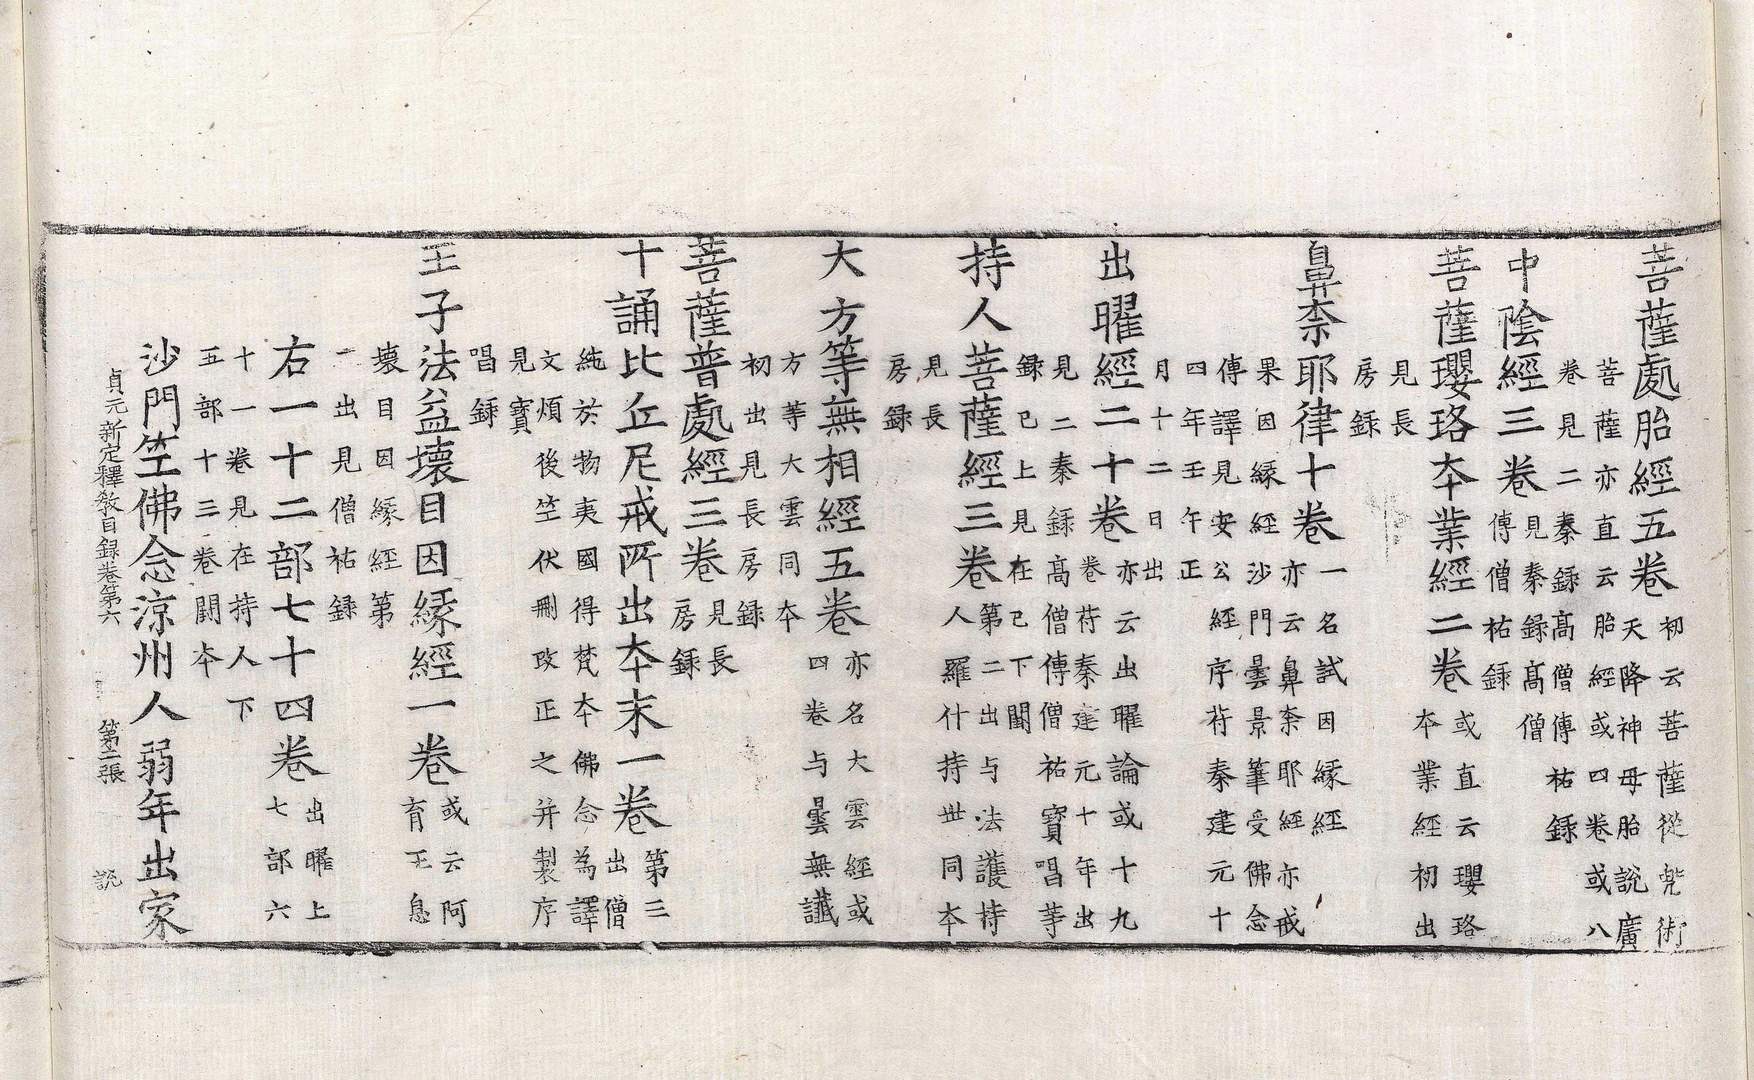 菩薩處胎經五卷初云菩薩從兜術
天降神母胎說廣
菩薩亦直云胎經或四卷或八
卷見二秦錄高僧傳祐錄
中陰經三卷見秦錄高僧
傳僧祐錄
菩薩瓔珞本業經二卷或直云瓔珞
本業經初出
見長
房錄
鼻柰耶律十卷一名試因緣經
亦云鼻柰耶經亦戒
果因緣經沙門曇景筆受佛念
傳譯見安公經序苻秦建元十
四年壬午正
月十二日出
出曜經二十卷亦云出曜論或十九
卷苻秦建元十年出
見二秦錄高僧傳僧祐寶唱等
錄已上見在已下闕
持人菩薩經三卷第二出与法護持
人羅什持世同本
見長
房錄
大方等無相經五卷亦名大雲經或
四卷与曇無讖
方等大雲同本
初出見長房錄
菩薩普處經三卷見長
房錄
十誦比丘尼戒所出本末一卷第三
出僧
純於物夷國得梵本佛念為譯
文煩後竺伏刪改正之并製序
見寶
唱錄
王子法益壞目因緣經一卷或云阿
育王息
壞目因緣經第
一出見僧祐錄
右一十二部七十四卷出曜上
七部六
十一卷見在持人下
五部十三卷闕本
沙門竺佛念涼州人弱年出家
貞元新定釋教目錄卷第六 第二張 說